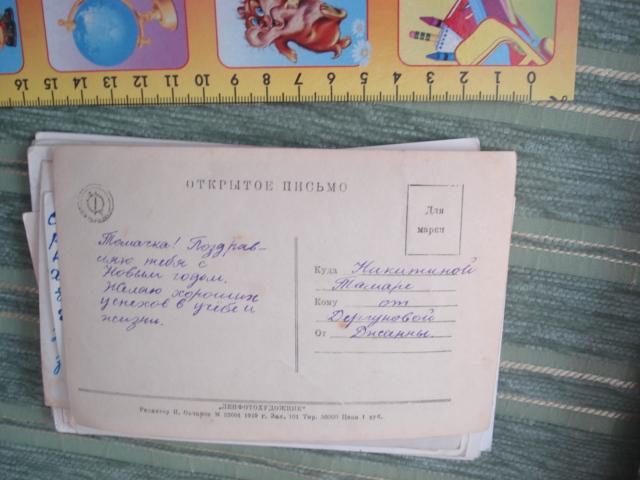 16 15 14 13 12 11 10 9 8 7 6 5 4 3 2 1 0
ОТКРЫТОЕ ПИСЬМО
Для
марки
Томачка! Поздрав-
ляю тебя с
Новым годом.
Желаю хороших
успехов в учёбе и
жизни.
Куда Никитиной
Тамаре
Кому от
Дергуновой
От Джанны.
„ЛЕНФОТОХУДОЖНИК"
Редактор П. 1949 г. Зак. 101 Тир. Цена 1 руб.